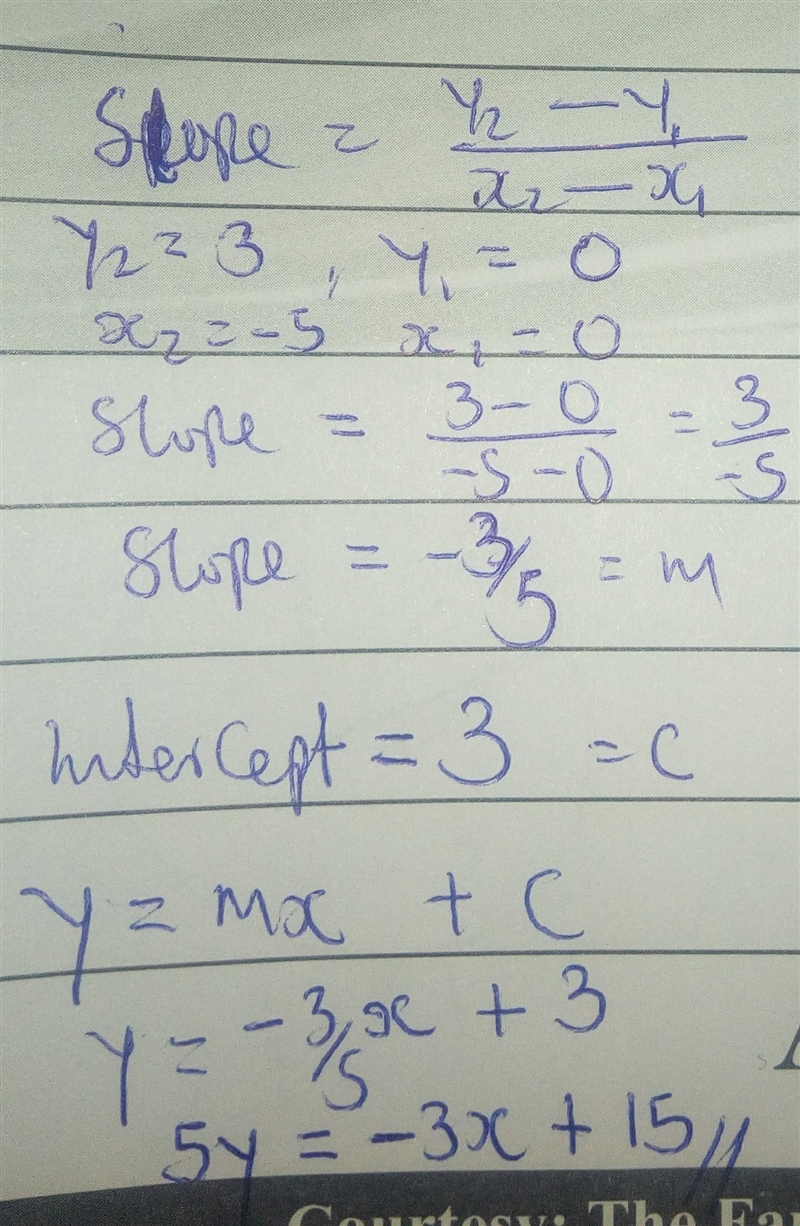 Slope = y₂ - y₁ / x₂ - x₁
y₂ = 3 , y₁ = 0
x₂ = -5 x₁ = 0
Slope = 3 - 0 / -5 - 0 = 3 / -5
Slope = -3/5 = m
Intercept = 3 = c
y = mx + c
y = -3/5 x + 3
5y = -3x + 15 //
Courtesy: The